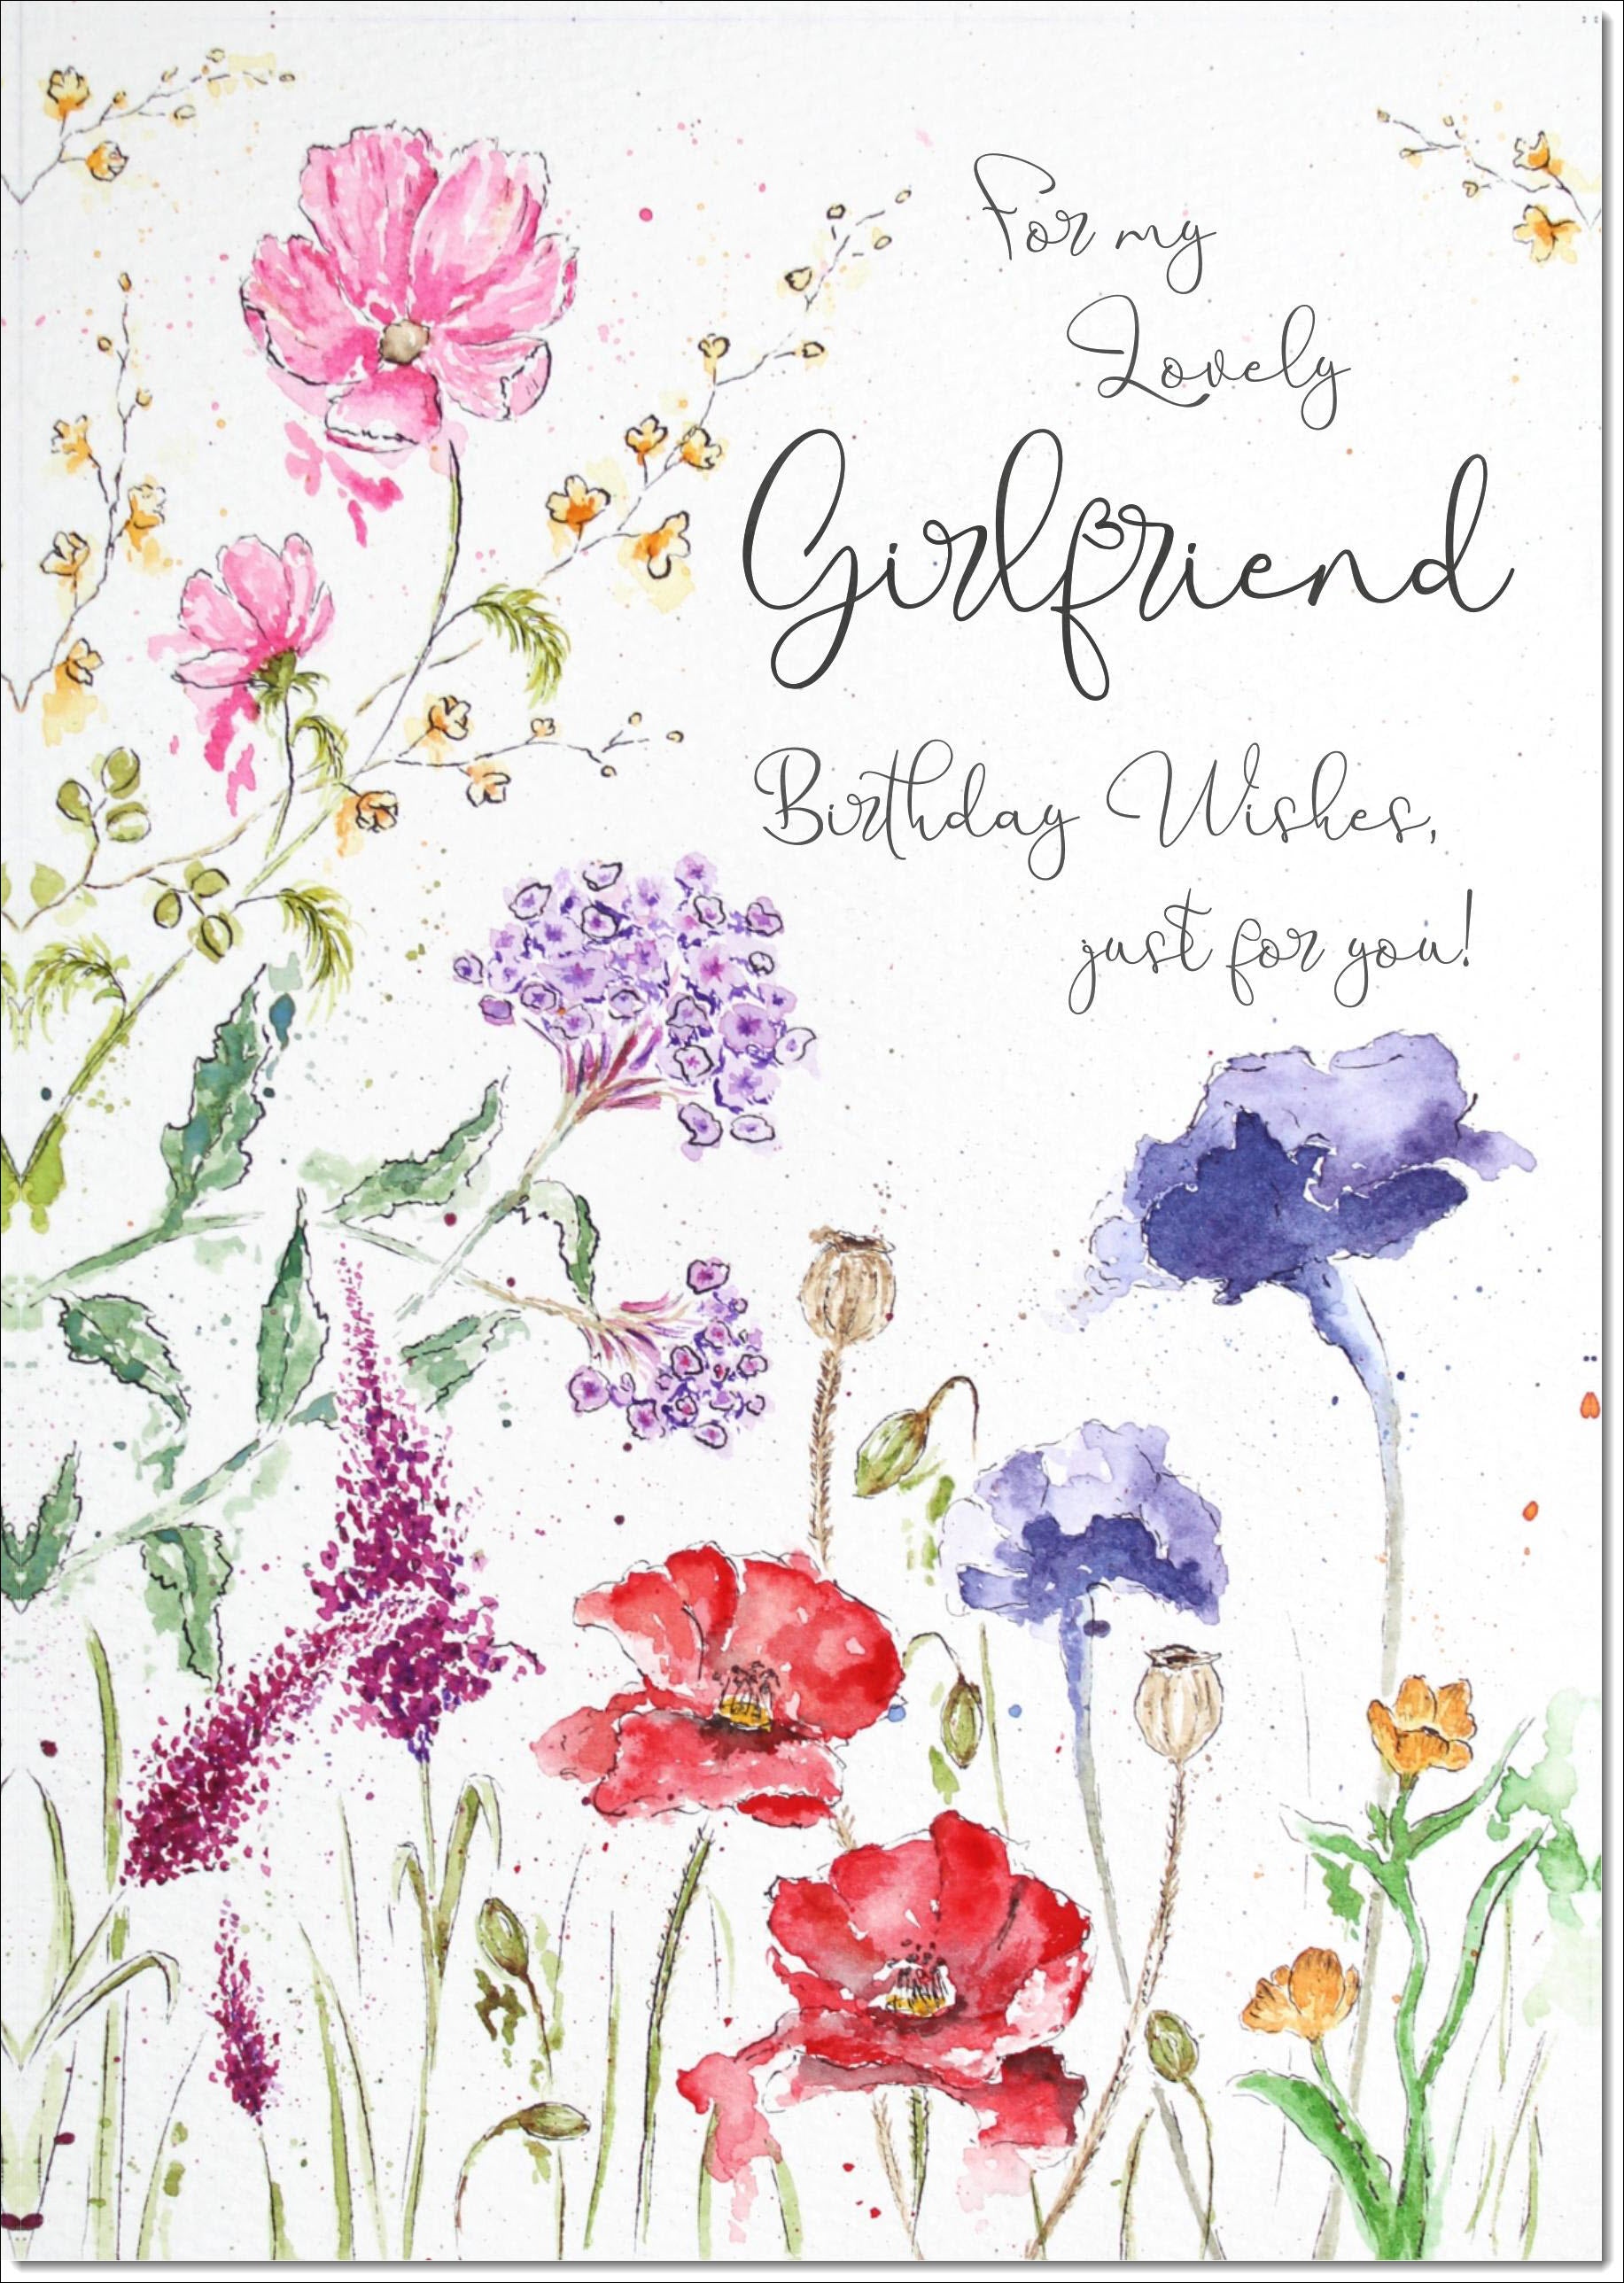 For my
Lovely
Girlfriend
Birthday Wishes,
just for you!